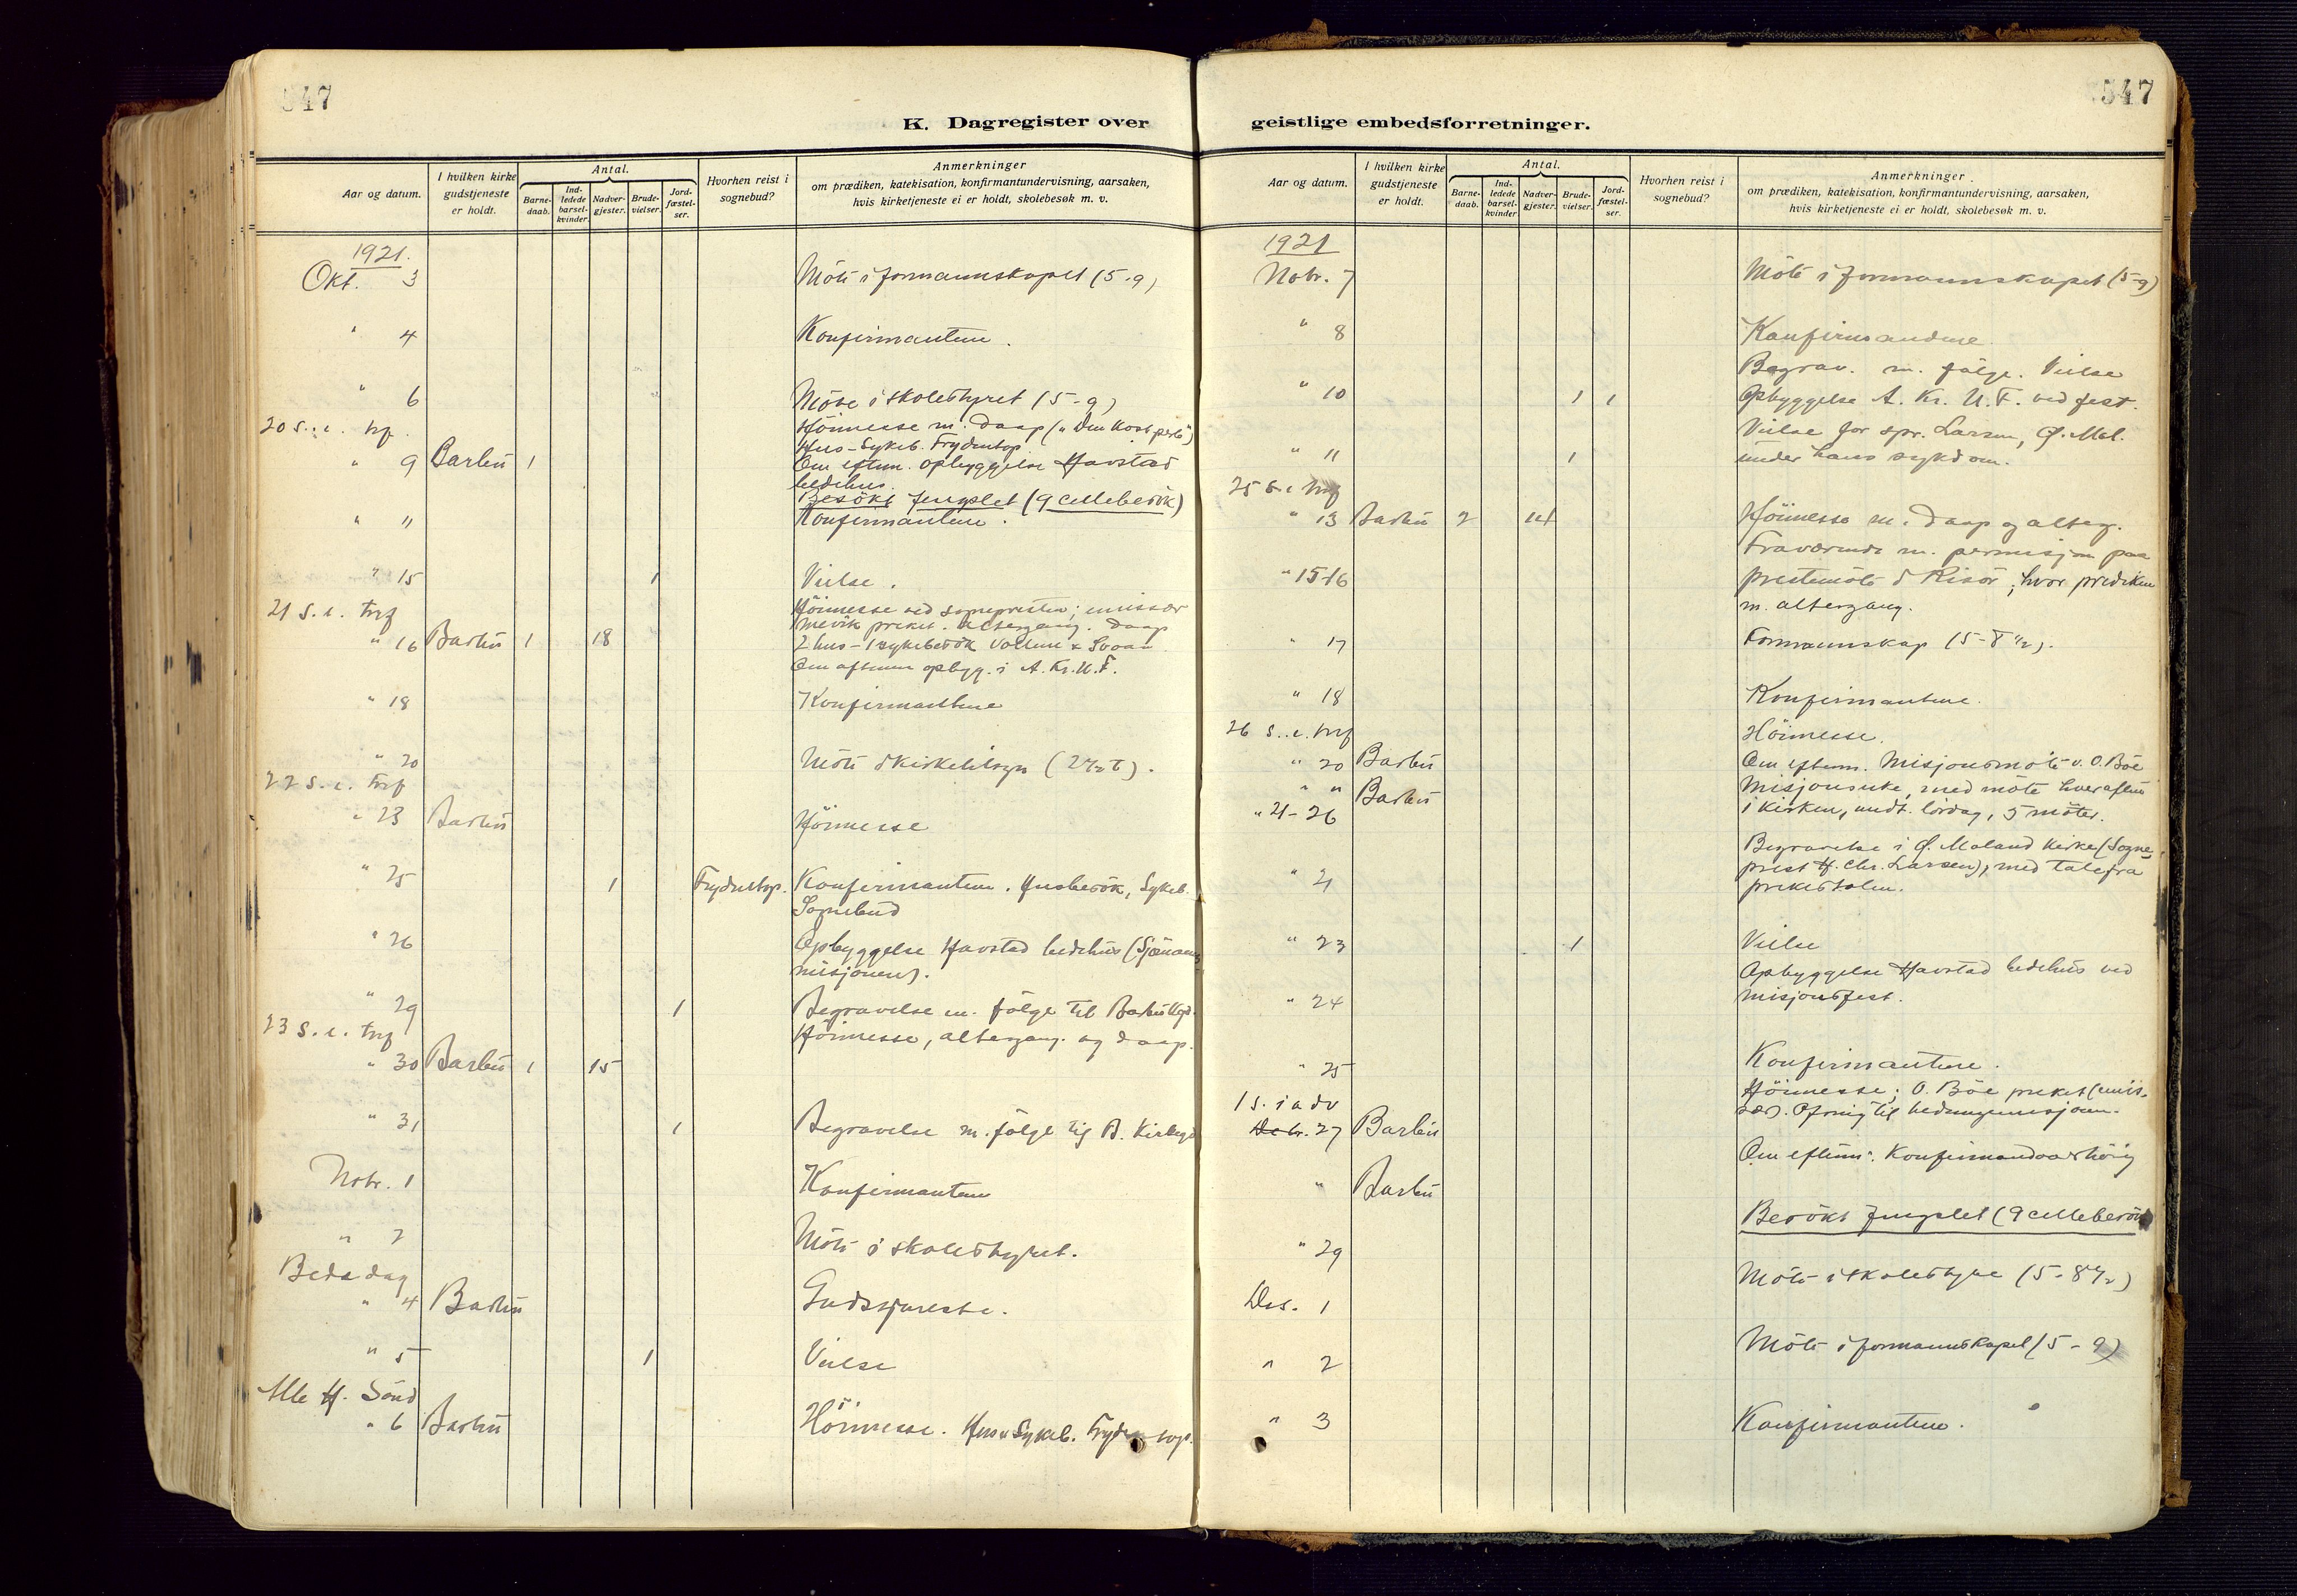 547
K. Dagregister over
Aar og datum.
I hvilken kirke gudstjeneste er holdt.
Antal.
Barne-daab.
Ind-ledede barsel-kvinder
Nadver-gjester.
Brude-vielser.
Jord-fæstel-ser.
Hvorhen reist i sognebud?
Anmerkninger
om prædiken, katekisation, konfirmantundervisning, aarsaken,
hvis kirketjeneste ei er holdt, skolebesøk m. v.
1921.
Okt. 3 Möte i formannskapet (5-9)
" 4 Konfirmantene.
" 6 Möte i skolestyret (5-9)
20 s. e. trf. Höimesse m. daap ("Den kost. perle")
Hus-Sykeb. Frydentop
" 9 Barbu 1 Om eftm. opbyggelse Havstad
bedehus.
Besökt fengslet (9 cellebesök)
" 11 Konfirmantene.
" 15 1 Vielse.
21 S. e. trf Höimesse ved sognepresten; emissær
preket. altergang. daap
" 16 Barbu 1 18 2 hus-1 sykebesök
Om aftenen opbyg. i A. Kr. U. F.
" 18 Konfirmantene
" 20 Möte i kirketilsyn
22 S. e. trf
" 23 Barbu Höimesse
" 25 1 Frydentop. Konfirmantene. Husbesök, Sykeb.
Sognebud
" 26 Opbyggelse Havstad bedehus (Sjömanns
misjonen).
" 29 1 Begravelse m. fölge til Barbu Kgd.
23 S. e. trf Höimesse, altergang. og daap.
" 30 Barbu 1 15
" 31 1 Begravelse m. fölge til B. Kirkegd
Nobr. 1 Konfirmantene
" 2 Möte i skolestyret.
Bededag
" 4 Barbu Gudstjeneste.
" 5 1 Vielse
Alle H. Sönd
" 6 Barbu Höimesse. Hus & Sykeb. Frydentop.
547
geistlige embedsforretninger.
Aar og datum.
I hvilken kirke gudstjeneste er holdt.
Antal.
Barne-daab.
Ind-ledede barsel-kvinder
Nadver-gjester.
Brude-vielser.
Jord-fæstel-ser.
Hvorhen reist i sognebud?
Anmerkninger
om prædiken, katekisation, konfirmantundervisning, aarsaken,
hvis kirketjeneste ei er holdt, skolebesøk m. v.
1921
Nobr. 7 Möte i formannskapet (5-9)
" 8 Konfirmandene.
Begrav. m. fölge. Vielse
" 10 1 1 Opbyggelse A. Kr. U. F. ved fest.
Vielse for spr. Larsen, Ö. Mol.
" 11 1 under hans sykdom.
25 S. e. trf
" 13 Barbu 2 14 Höimesse m. daap og alterg.
Fraværende m. permisjon paa
" 15-16 prestemöte i Risör, hvor prediken
m. altergang.
" 17 Formannskap (5-8 1/2).
" 18 Konfirmantene.
26 S. e. trf Höimesse.
" 20 Barbu Om eftm. Misjonsmöte v. O. Böe
" " Barbu Misjonsuke, med möte hver aften
" 21-26 i kirken, undt. lördag, 5 möter.
Begravelse i Ö. Moland kirke (Sogne-
" 21 prest H. Chr. Larsen), med tale fra
prekestolen.
" 23 1 Vielse
Opbyggelse Havstad bedehus ved
" 24 misjonsfest.
" 25 Konfirmantene.
1 S. i adv Höimesse; O. Böe preket (emis-
sær). Ofring til hedningemisjonen.
Debr. 27 Barbu
Om eftm. Konfirmandoverhöring
" Barbu
Besökt fengslet (9 cellebesök)
" 29
Möte i skolestyre (5-8 1/2)
Des. 1
Möte i formannskapet (5-9)
" 2
" 3 Konfirmantene.